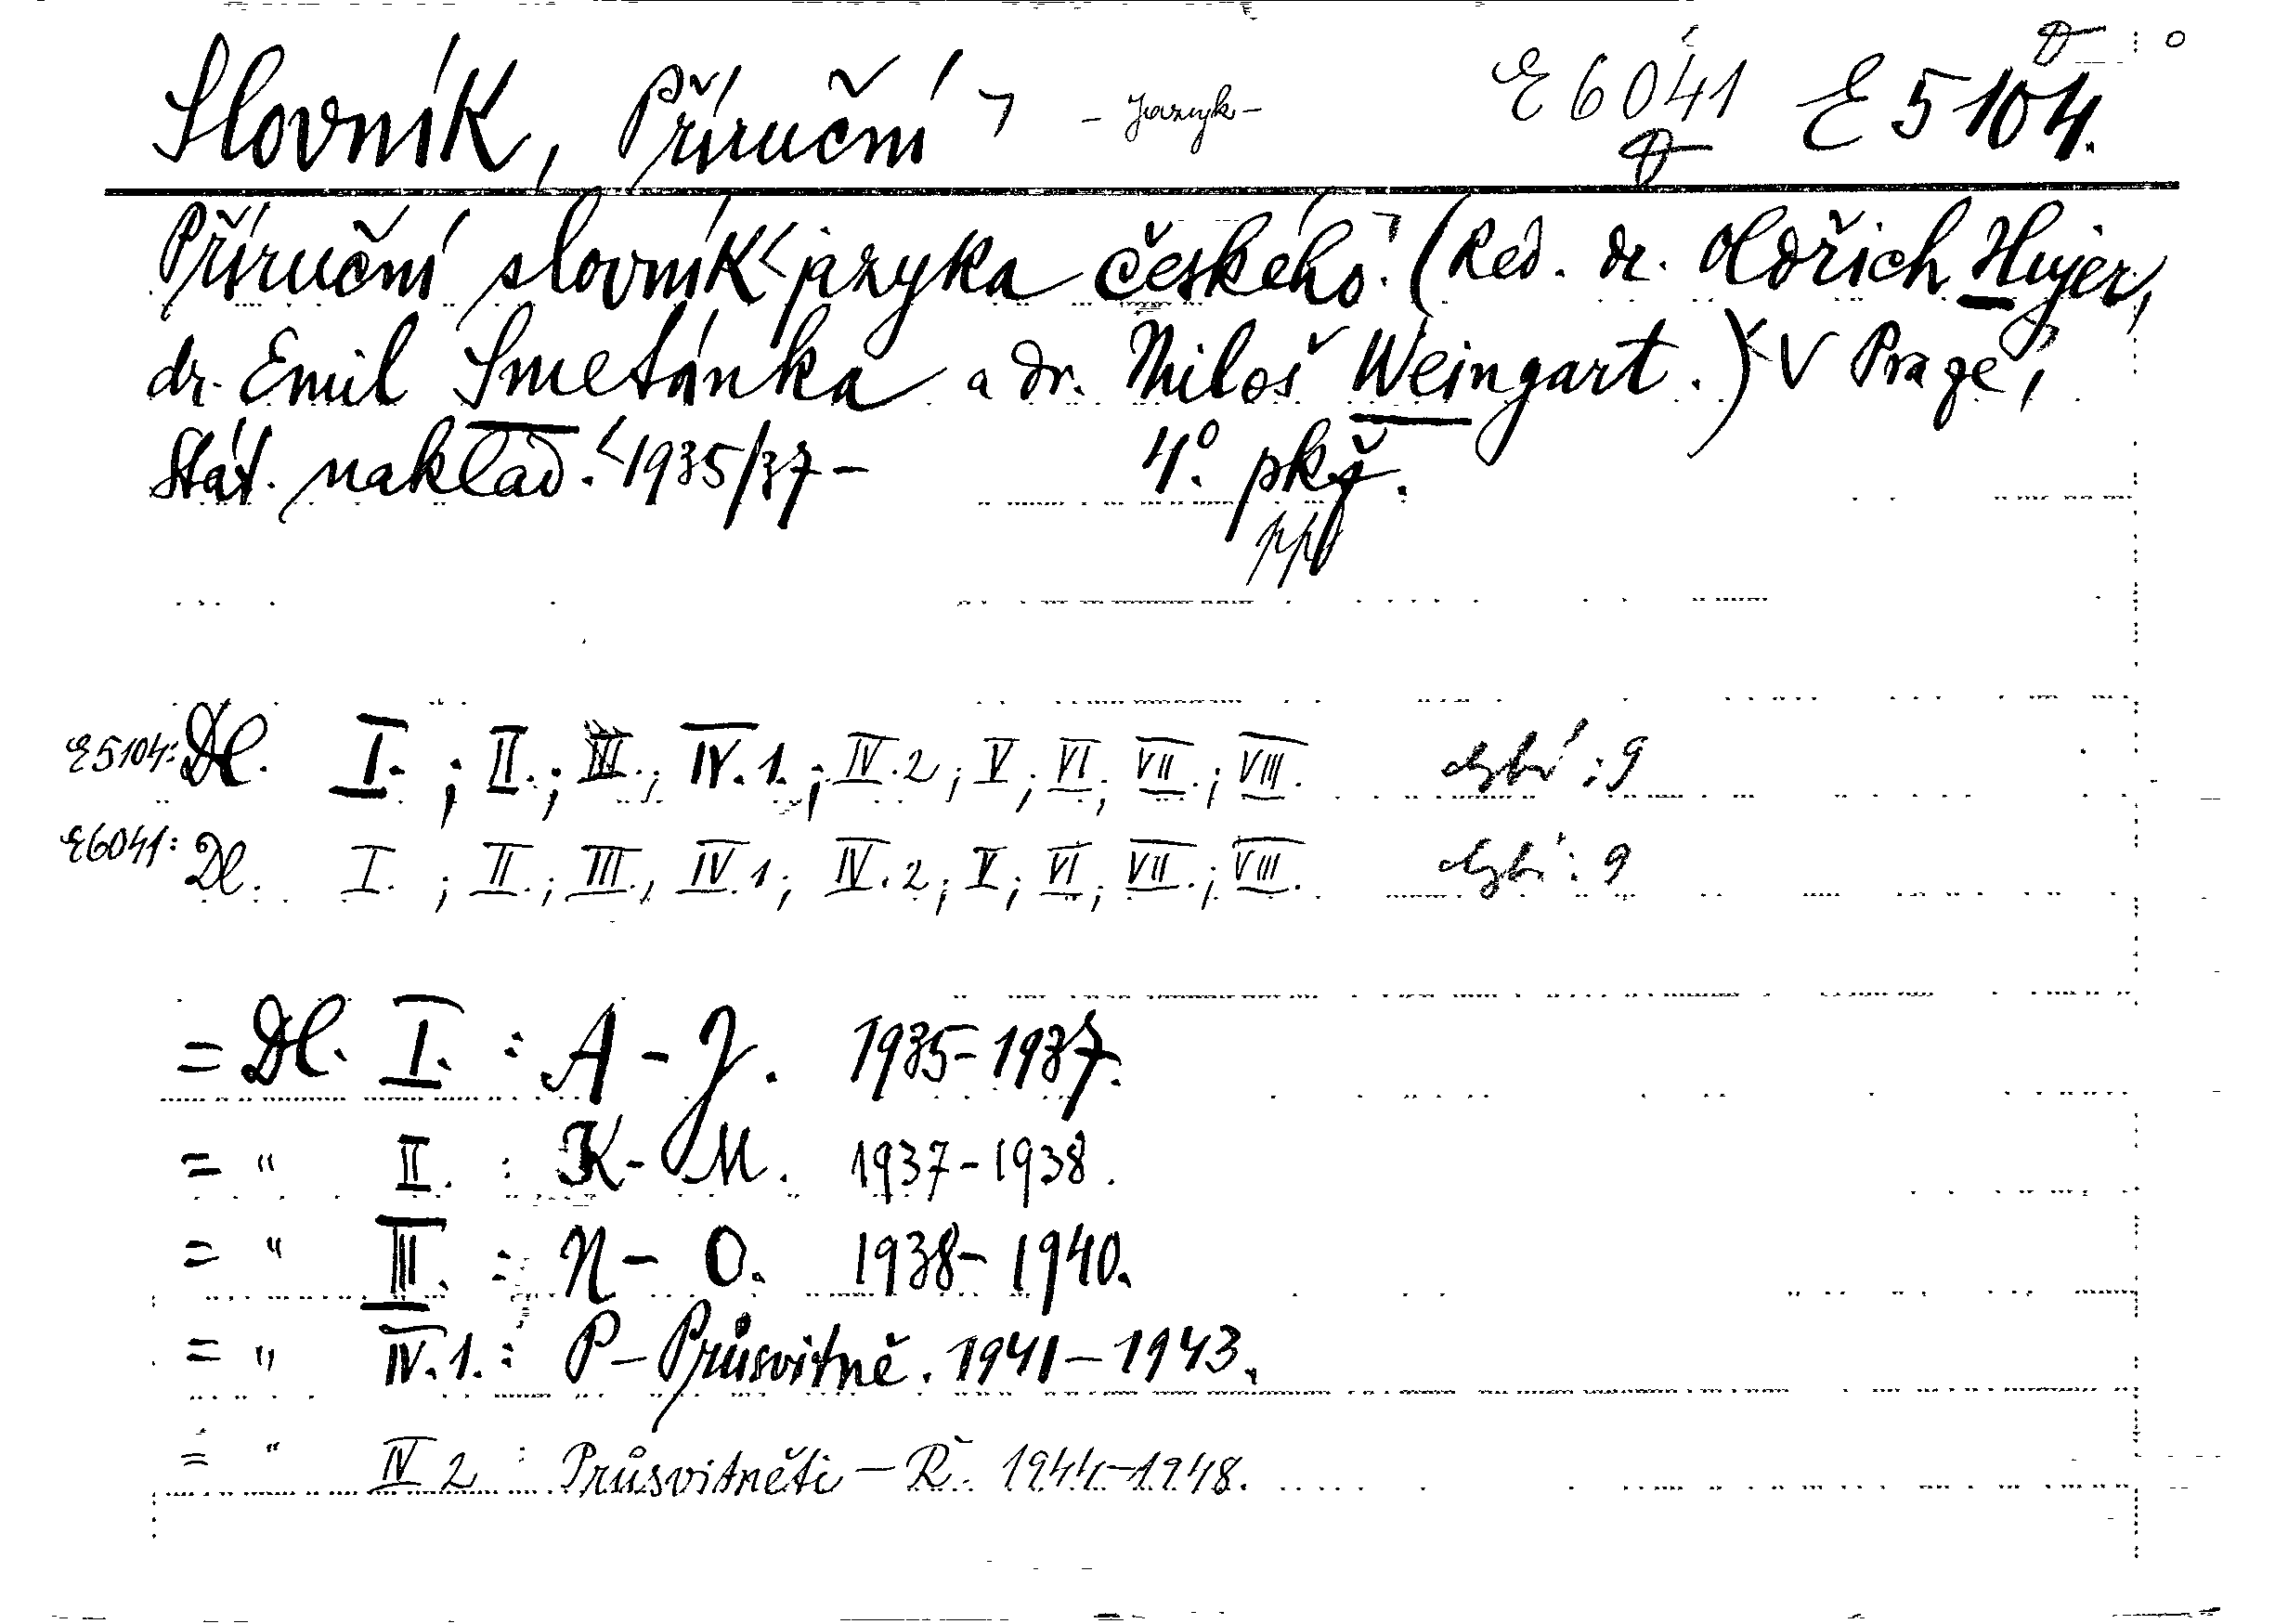 Slovník, Příruční ⌝ - Jazyk - E 6041 E 5104.
Příruční slovník < jazyka českého. ⌝ (Red. dr. Oldřich Hujer,
dr. Emil Smetánka a dr. Miloš Weingart.) < V Praze,
Stát. naklad. < 1935/37 - 4°. pkž.
ppř
E5104: Dl. I. ; II. ; III. ; IV. 1. ; IV. 2 ; V ; VI ; VII. ; VIII. chybí : 9
E6041: Dl. I. ; II. ; III. , IV. 1 ; IV. 2 ; V ; VI ; VII. ; VIII. chybí : 9
= Dl. I. : A - J. 1935-1937.
= " II. : K - M. 1937-1938.
= " III. : N - O. 1938-1940.
= " IV. 1. : P - Průsvitně. 1941-1943.
= " IV 2 : Průsvitněti - Ř. 1944-1948.